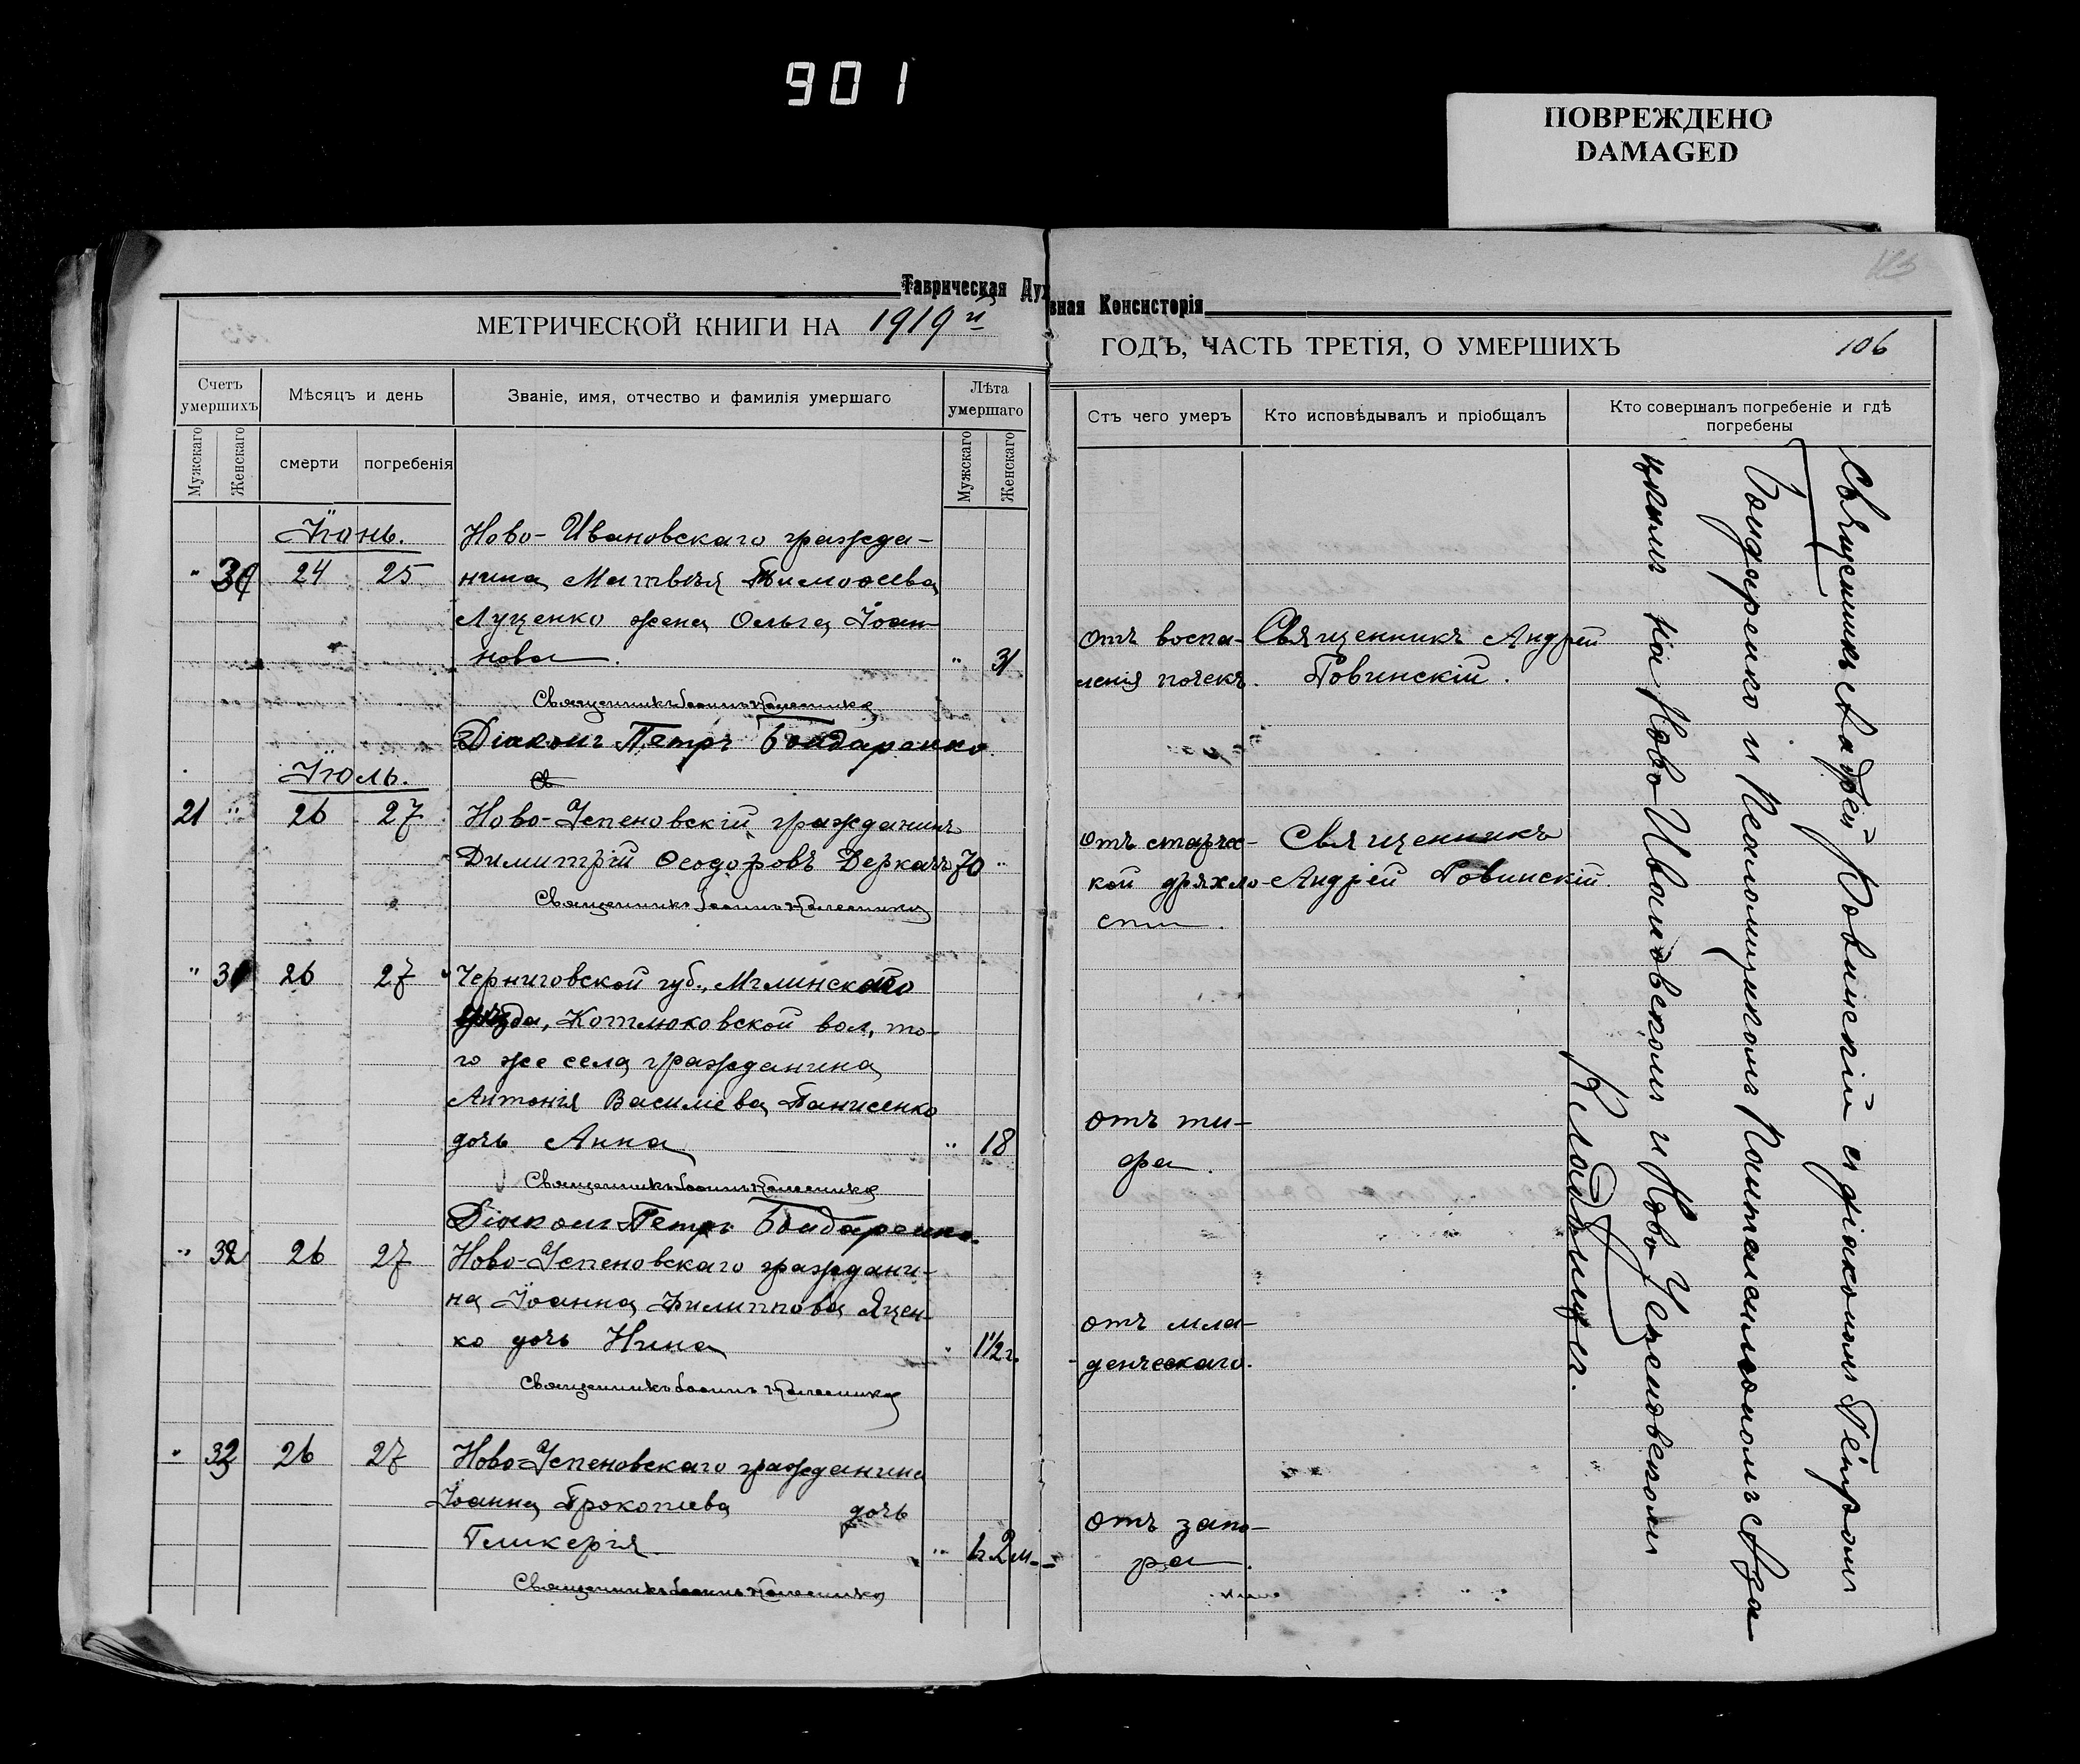 901
ПОВРЕЖДЕНО
DAMAGED
Таврическая Духовная Консисторія
МЕТРИЧЕСКОЙ КНИГИ НА 1919й
Счетъ умершихъ
Мужскаго
Женскаго
Мѣсяцъ и день
смерти
погребенія
Званіе, имя, отчество и фамилія умершаго
Лѣта умершаго
Мужскаго
Женскаго
Іюнь.
Ново-Ивановскаго гражда-
" 30 24 25 нина Матвѣя Тимоѳеева
Луценко жена Ольга Іоан-
нова. " 31
Священникъ Іоаннъ Колесниковъ
Діаконъ Петръ Бондаренко
Іюль.
21 " 26 27 Ново-Успеновскій гражданинъ
Димитрій Ѳеодоровъ Деркачъ 70 "
Священникъ Іоаннъ Колесниковъ
" 31 26 27 Черниговской губ., Мглинскаго
уѣзда, Котлюковской вол, то-
го же села гражданина
Антонія Василіева Панисенко
дочь Анна " 18
Священникъ Іоаннъ Колесниковъ
Діаконъ Петръ Бондаренко.
" 32 26 27 Ново-Успеновскаго граждани-
на Іоанна Филиппова Яцен-
ко дочь Нина " 1½ г.
Священникъ Іоаннъ Колесниковъ
" 33 26 27 Ново-Успеновскаго гражданина
Іоанна Прокопіева дочь
Гликерія " 2 м.
Священникъ Іоаннъ Колесниковъ
113
ГОДЪ, ЧАСТЬ ТРЕТІЯ, О УМЕРШИХЪ
106
Отъ чего умеръ
Кто исповѣдывалъ и пріобщалъ
Кто совершалъ погребеніе и гдѣ погребены
отъ воспа- Священникъ Андрей
ленія почекъ. Ровинскій.
отъ старчес- Священникъ
кой дряхло- Андрей Ровинскій.
сти.
отъ ти-
фа.
отъ мла-
денческаго.
отъ запо-
ра.
Священникъ Андрей Ровинскій съ діакономъ Петромъ
Бондаренко и Псаломщикомъ Пантелеимономъ
на Ново Ивановскомъ и Ново Успеновскомъ
Кладбищѣ.